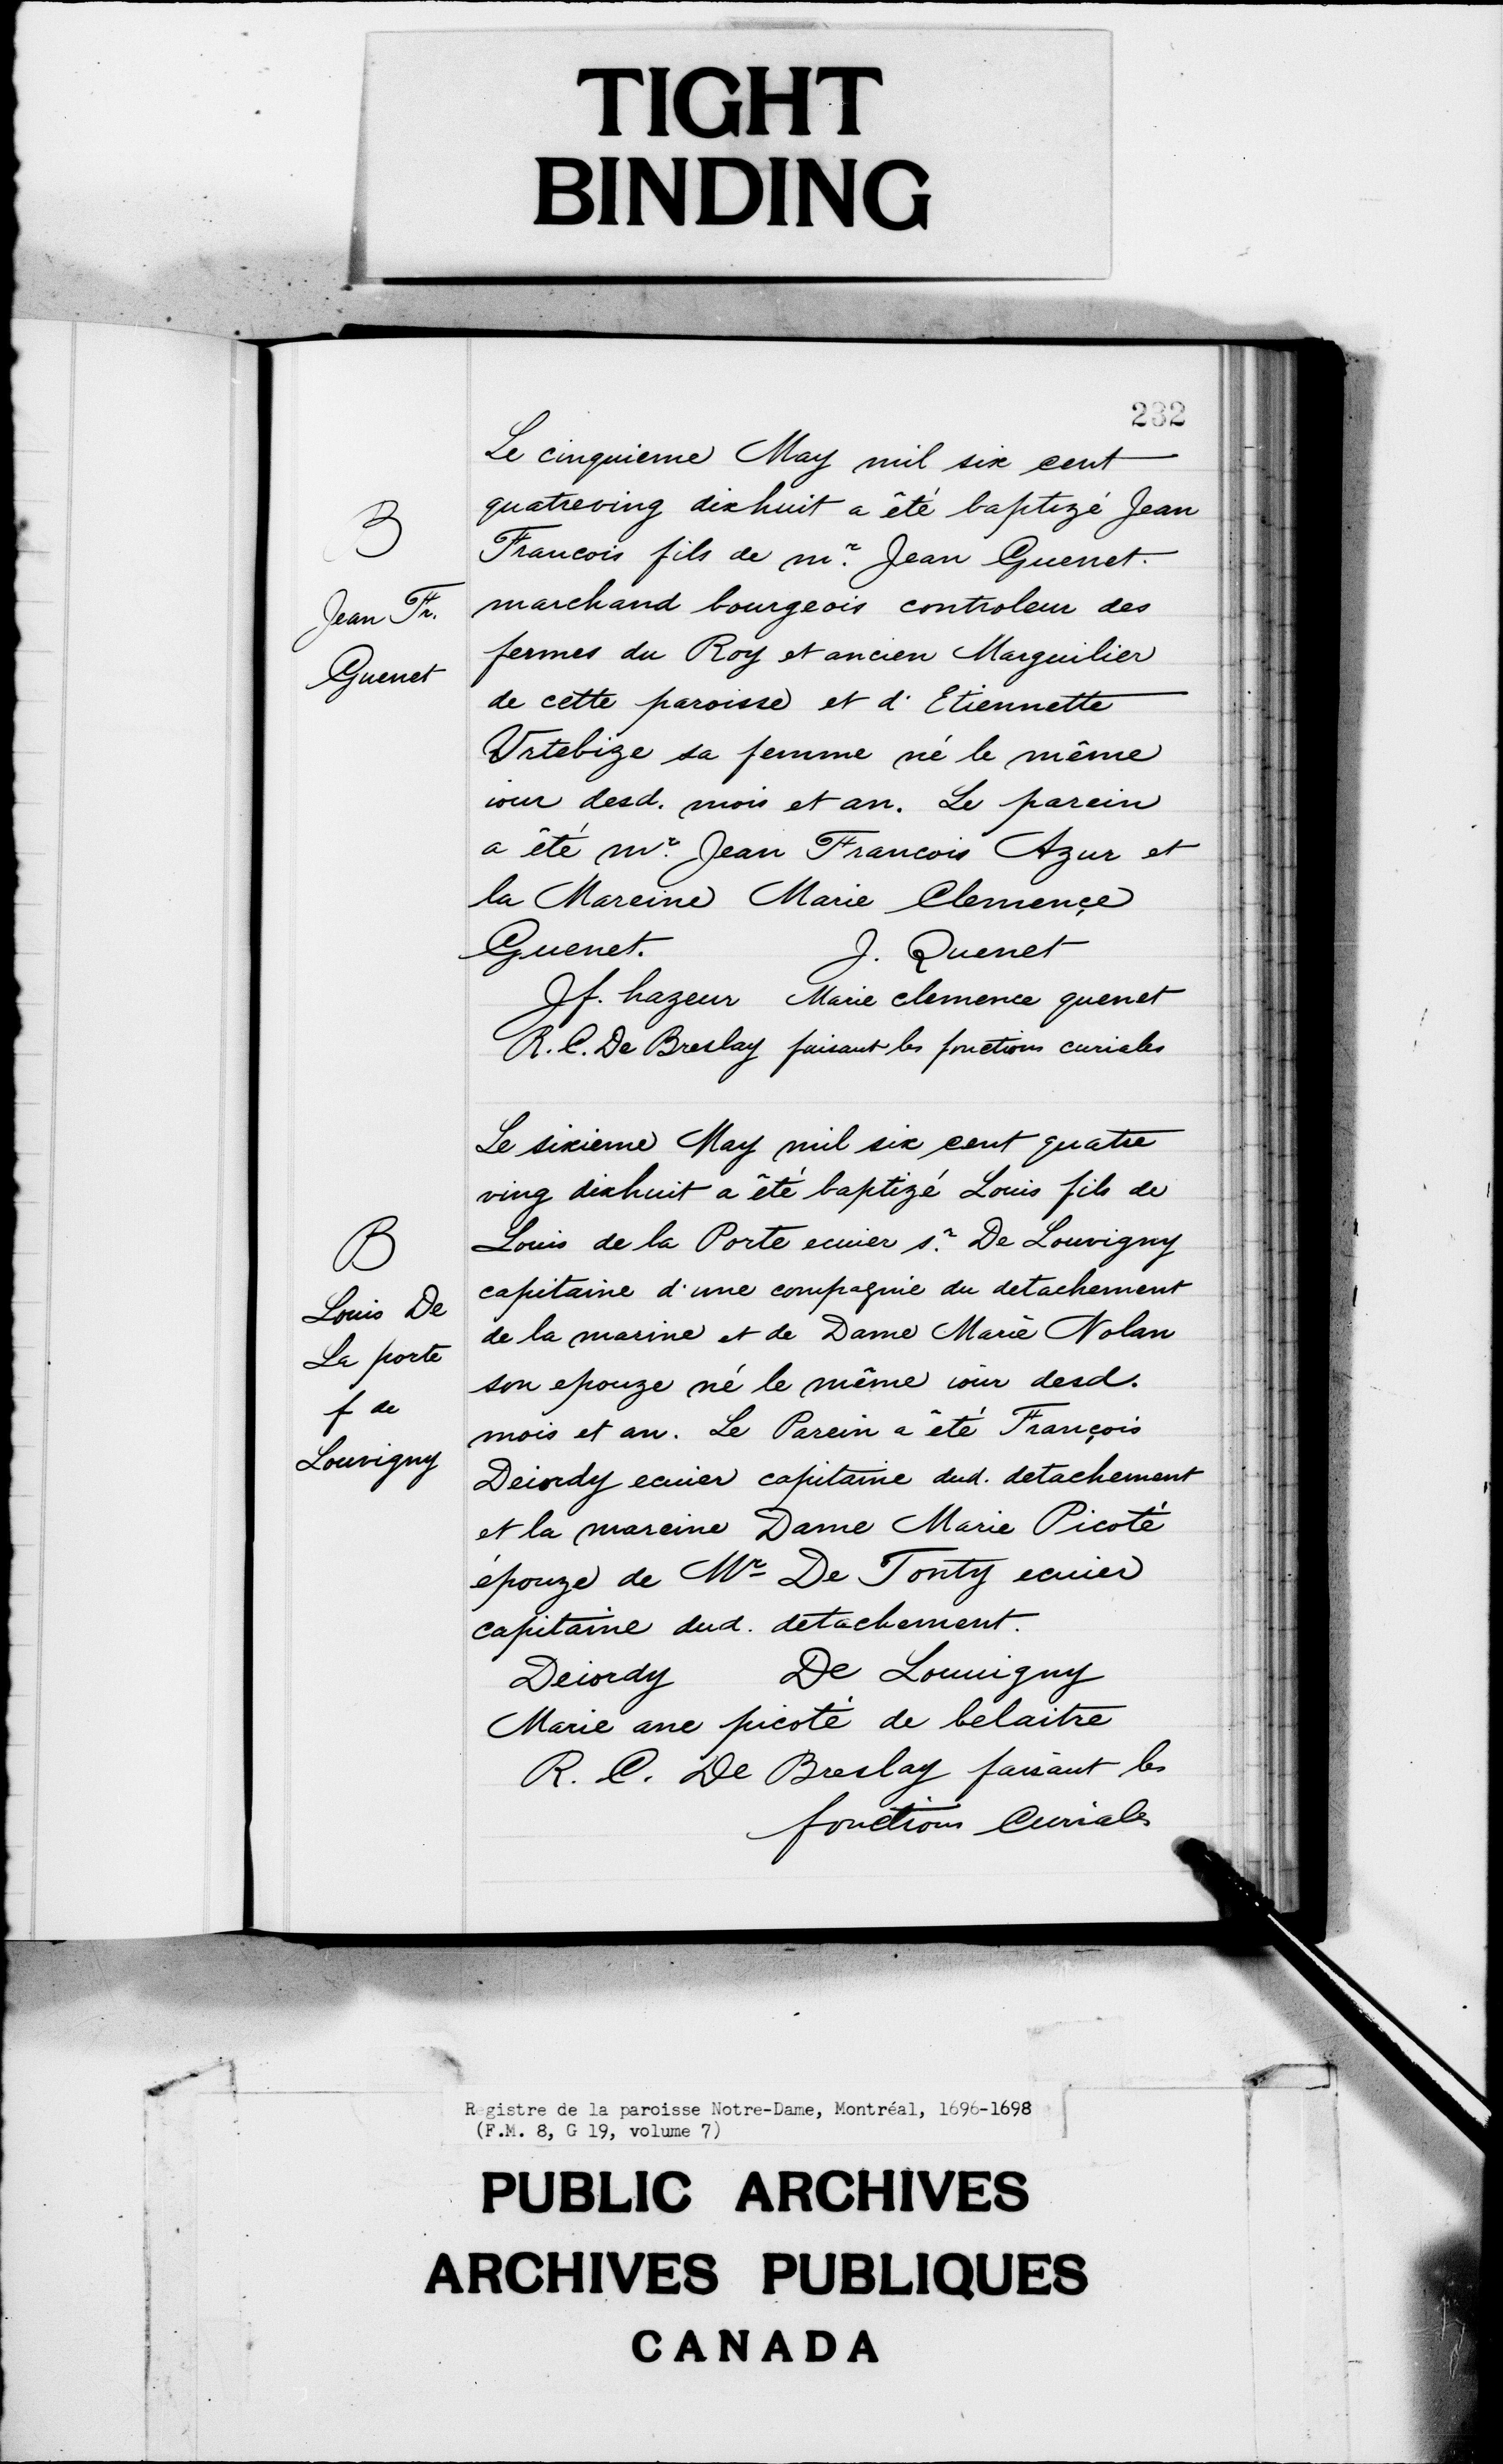 TIGHT
BINDING
232
Le cinquieme May mil six cent
quatreving dixhuit a été baptizé Jean
Francois fils de mr. Jean Guenet.
marchand bourgeois controleur des
fermes du Roy et ancien Marguilier
de cette paroisse et d'Etiennette
Vrtebize sa femme né le même
iour desd. mois et an. Le parein
a été mr. Jean Francois Azur et
la Mareine Marie Clemençe
Guenet. J. Quenet
Jf. hazeur Marie clemence quenet
R. C. De Breslay faisant les fonctions curiales
B
Jean Fr.
Guenet
Le sixieme May mil six cent quatre
ving dixhuit a été baptizé Louis fils de
Louis de la Porte ecuier sr. De Louvigny
capitaine d'une compagnie du detachement
de la marine et de Dame Marie Nolan
son epouze né le même iour desd.
mois et an. Le Parein a été François
Deiordy ecuier capitaine dud. detachement
et la mareine Dame Marie Picoté
épouze de Mr De Tonty ecuier
capitaine dud. detachement.
Deiordy De Louuigny
Marie ane picoté de belaitre
R. C. De Breslay faisant les
fonctions Curiales
B
Louis De
La porte
f de
Louvigny
Registre de la paroisse Notre-Dame, Montréal, 1696-1698
(F.M. 8, G 19, volume 7)
PUBLIC ARCHIVES
ARCHIVES PUBLIQUES
CANADA